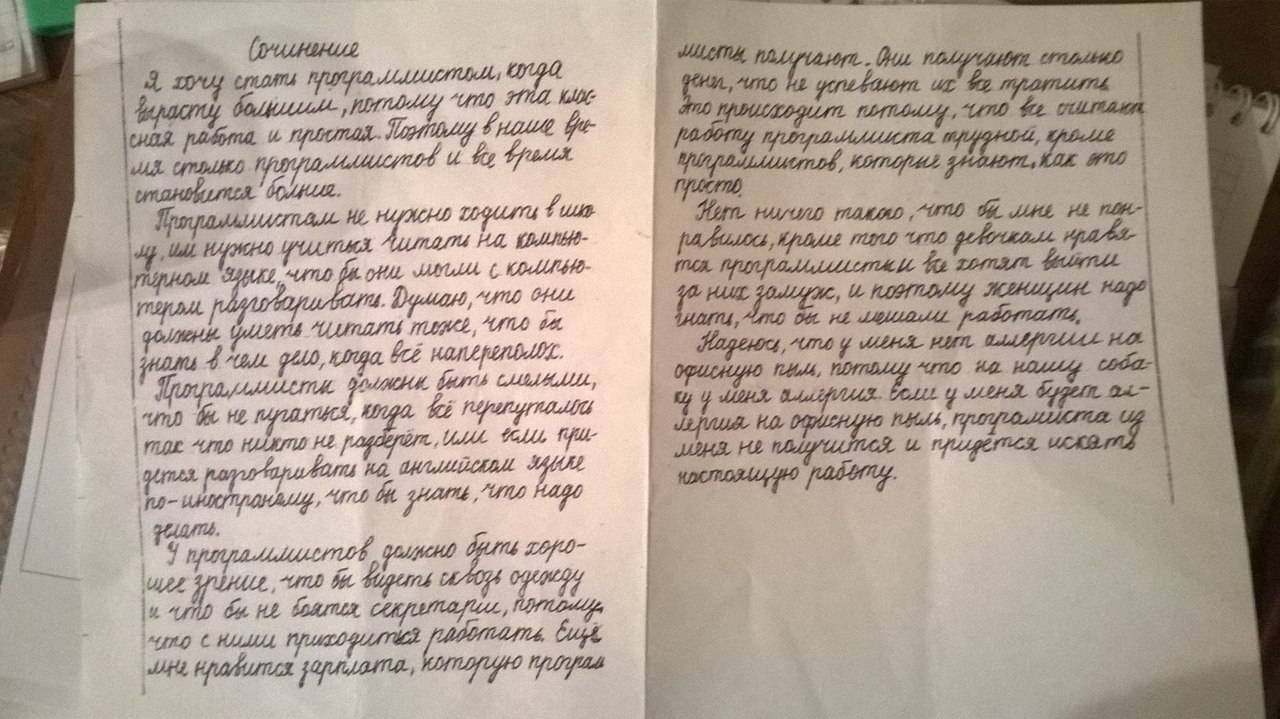 Сочинение
Я хочу стать программистом, когда
вырасту большим, потому что эта клас-
сная работа и простая. Поэтому в наше вре-
мя столько программистов и все время
становится болшие.
Программистам не нужно ходить в шко-
лу, им нужно учиться читать на компью-
терном языке, что бы они могли с компью-
тером разговаривать. Думаю, что они
должны уметь читать тоже, что бы
знать в чем дело, когда всё напереполох.
Программисты должны быть смелыми,
что бы не пугаться, когда всё перепуталось
так что никто не разберёт, или если при-
дется разговаривать на английском языке
по-иностраному, что бы знать, что надо
делать.
У программистов должно быть хоро-
шее зрение, что бы видеть сквозь одежду
и что бы не боятся секретарш, потому,
что с ними приходиться работать. Ещё
мне нравится зарплата, которую програм
мисты получают. Они получают столько
денег, что не успевают их все тратить.
Это происходит потому, что все считают
работу программиста трудной, кроме
программистов, которые знают, как это
просто.
Нет ничего такого, что бы мне не пон-
равилось, кроме того что девочкам нравя-
тся программисты и все хотят выйти
за них замуж, и поэтому женщин надо
гнать, что бы не мешали работать.
Надеюсь, что у меня нет аллергии на
офисную пыль, потому что на нашу соба-
ку у меня аллергия. Если у меня будет ал-
лергия на офисную пыль, програмиста из
меня не получится и придётся искать
настоящую работу.